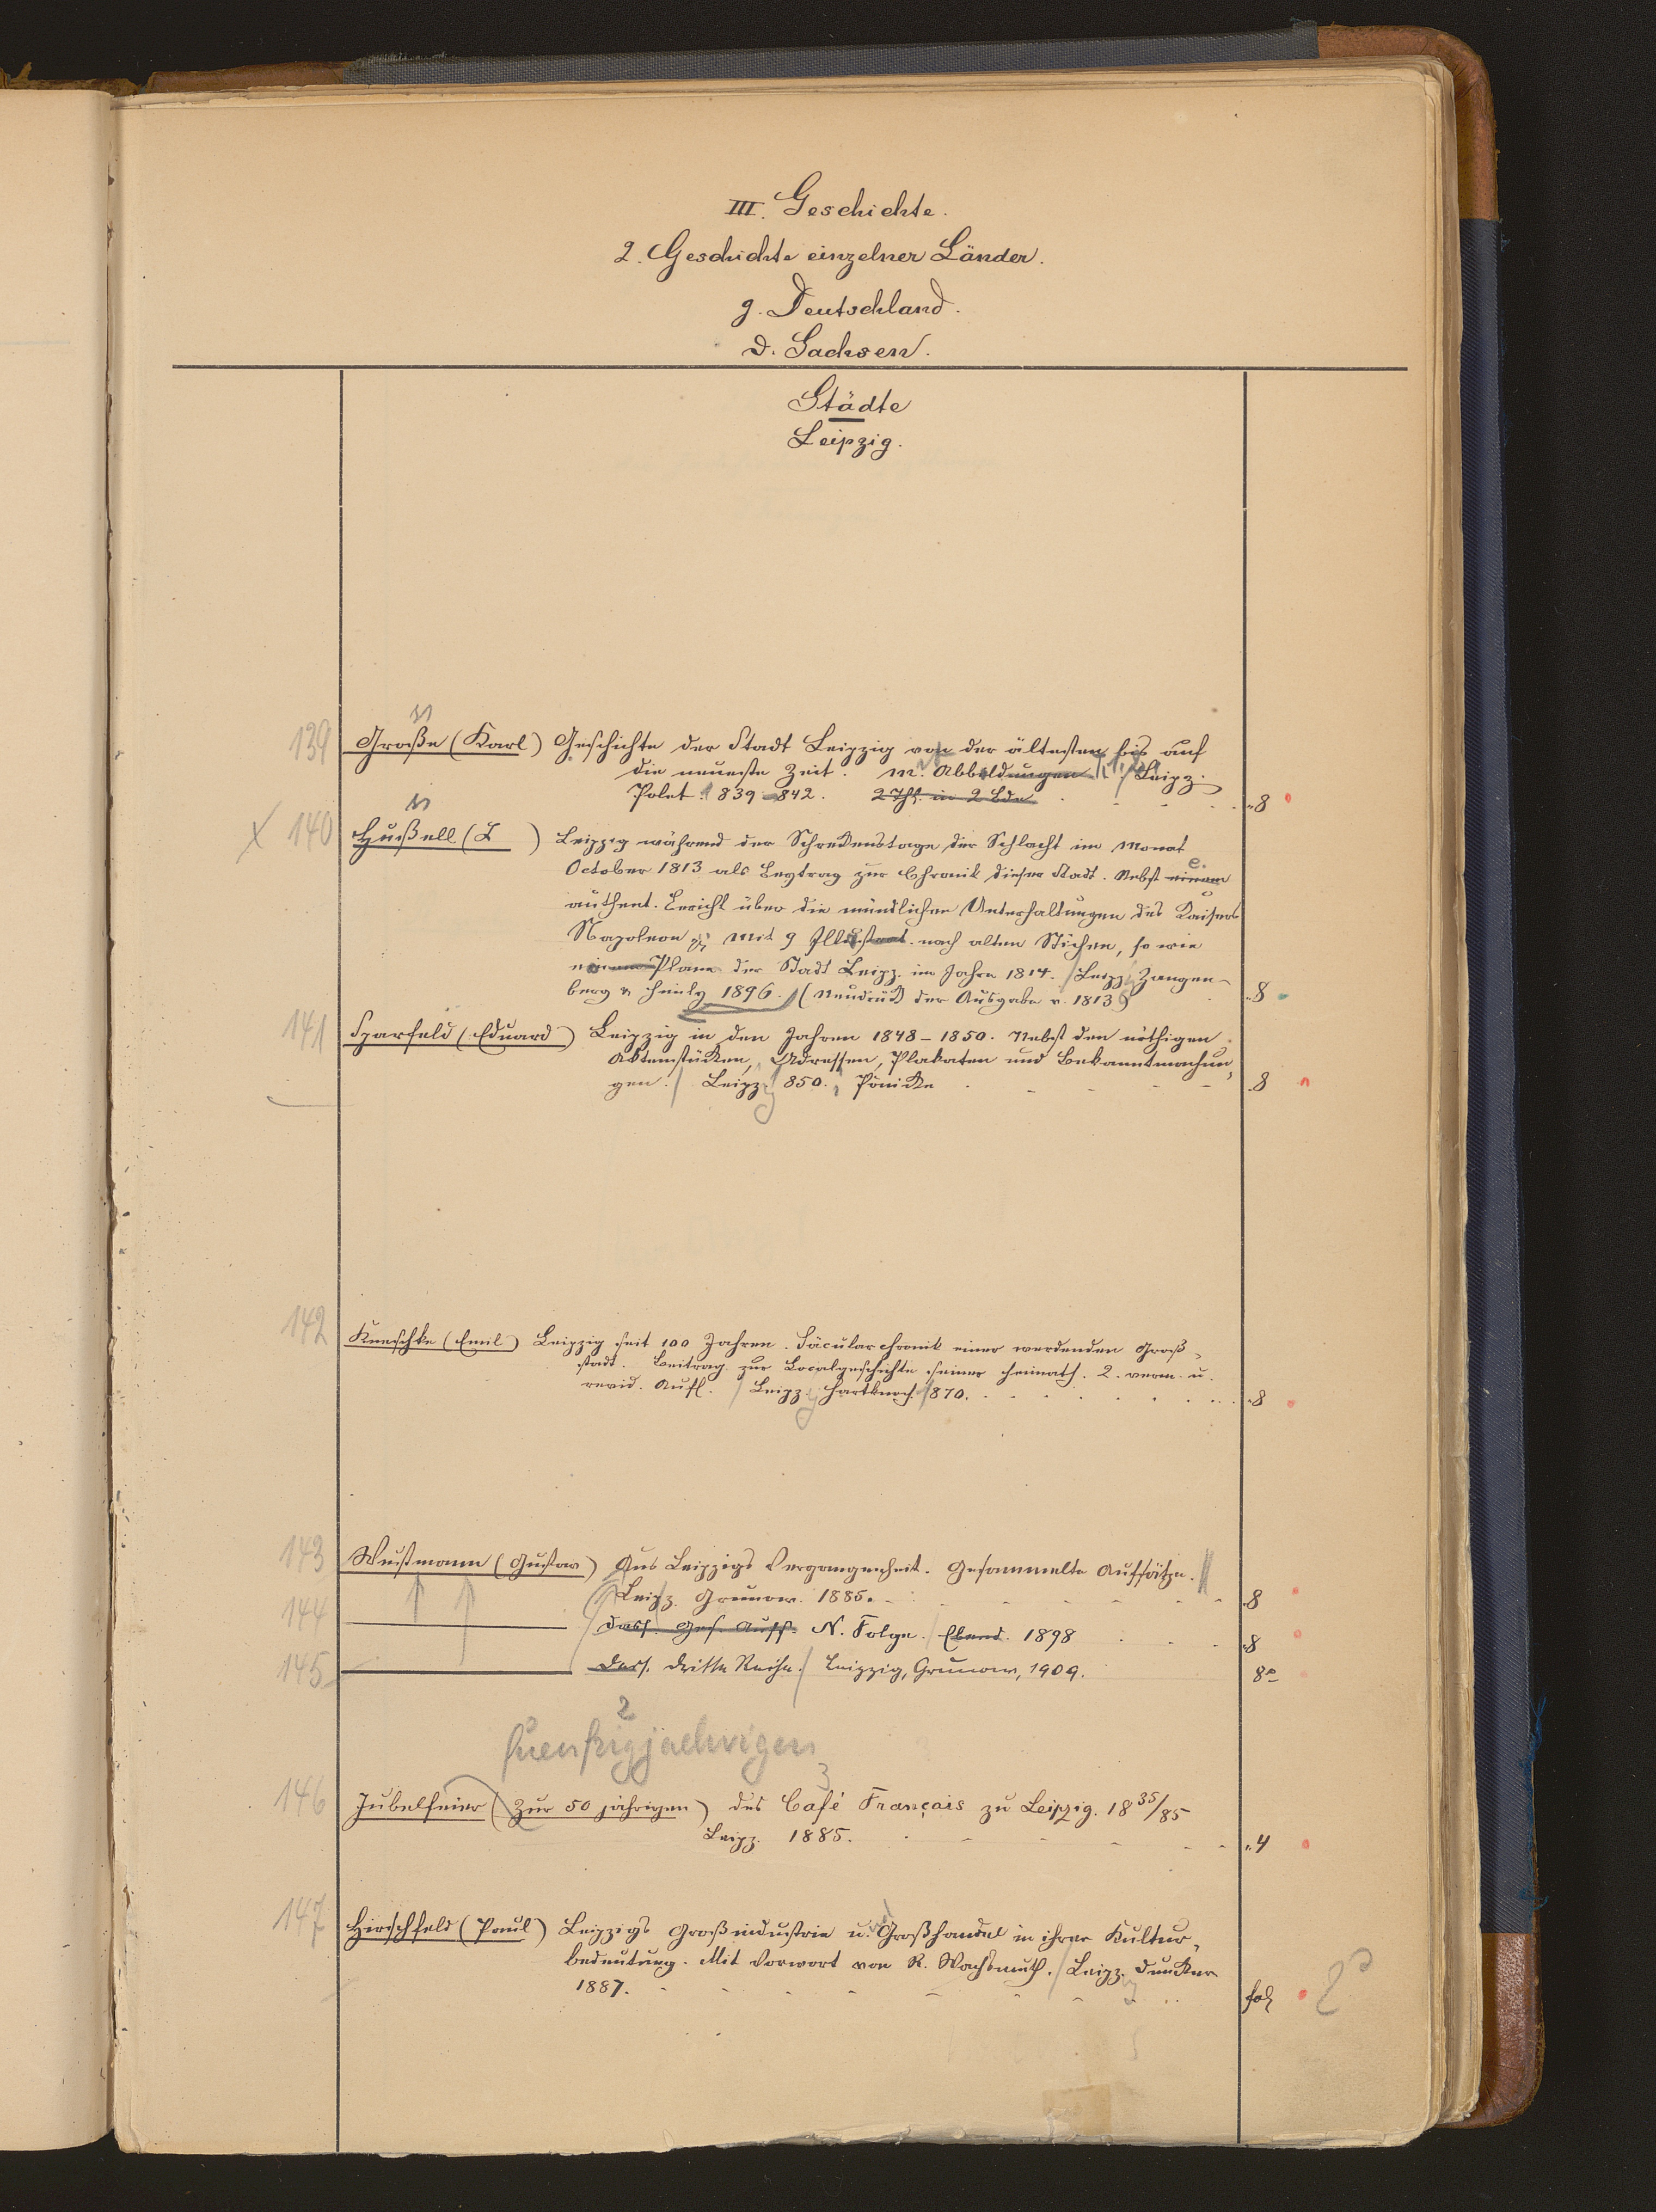 III. Geschichte.
2. Geschichte einzelner Länder.
g. Deutschland.
d. Sachsen.
Städte
Leipzig.
139 Große (Karl) Geschichte der Stadt Leipzig von der ältesten bis auf
die neueste Zeit. M. Abbildungen. Leipz.
Polet. 1839-842. 2 Thl. in 2 Bde 8
140 Hußell (L ) Leipzig während der Schreckenstage der Schlacht im Monat
October 1813 als Beytrag zur Chronik dieser Stadt. Nebst einem e.
authent. Bericht über die mündlichen Unterhaltungen des Kaisers
Napoleon Mit 9 Illustrat. nach alten Stichen, so wie
einem Plane der Stadt Leipz. im Jahre 1814. Leipz. Zangen-
berg & Himly 1896. (Neudruck der Ausgabe v. 1813) 8
141 Sparfeld (Eduard) Leipzig in den Jahren 1848-1850. Nebst den nöthigen
Aktenstücken, Adressen, Plakaten und Bekanntmachun-
gen. Leipz. 850. Pönicke 8
142 Kneschke (Emil) Leipzig seit 100 Jahren. Säcularchronik einer werdenden Groß-
stadt. Beitrag zur Localgeschichte seiner Heimath. 2. verm. u.
revid. Aufl. Leipz. Hartknoch. 1870. 8
143 Wustmann (Gustav) Aus Leipzigs Vergangenheit. Gesammelte Aufsätze.
Leipz. Grunow. 1885. 8
144 Dass. Ges. Auff. N. Folge. Ebend. 1898 8
145 Dass. Dritte Reihe. Leipzig, Grunow, 1909. 8°
2
fuenfzigjaehrigen
3
146 Jubelfeier (Zur 50 jährigen) des Café Français zu Leipzig. 1835/85
Leipz. 1885. 4
147 Hirschfeld (Paul) Leipzigs Großindustrie u. Großhandel in ihrer Kultur-
bedeutung. Mit Vorwort von R. Wachsmuth. Leipz. Duncker
1887. fol 2°